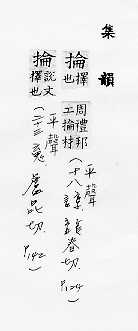 集韻
掄擇也
周禮邦工掄材
平聲(十八諄)龍春切. P.124
掄說文擇也
平聲(二十三魂)盧昆切. P.142